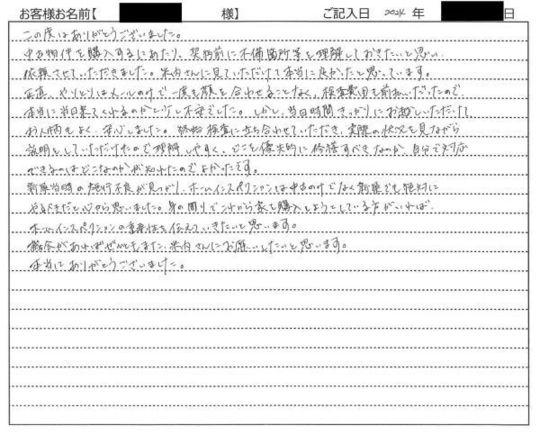 お客様お名前【 様】 ご記入日 2024 年 日
この度はありがとうございました。
中古物件を購入するにあたり、契約前に不備箇所等を理解しておきたいと思い
依頼させていただきました。米内さんに見ていただけて本当に良かったと思っています。
正直、やりとりはメールのみで一度も顔を合わせることなく、検査費用も前払いだったので
本当に当日来てくれるのか少し不安でした。しかし、当日時間きっかりにお越しいただいて
お人柄もよく、安心しました。終始検査に立ち合わせていただき、実際の状況を見ながら
説明をしていただけたので理解しやすく、どこを優先的に修繕すべきなのか、自分で対応
できるのはどこなのかが知れたのでよかったです。
新築当時の施行不良が見つかり、ホームインスペクションは中古のみでなく新築でも絶対に
やるべきだと心から思いました。身の周りでこれから家を購入しようとしている方がいれば
ホームインスペクションの重要性を伝えていきたいと思います。
機会があればぜひともまた、米内さんにお願いしたいと思います。
本当にありがとうございました。